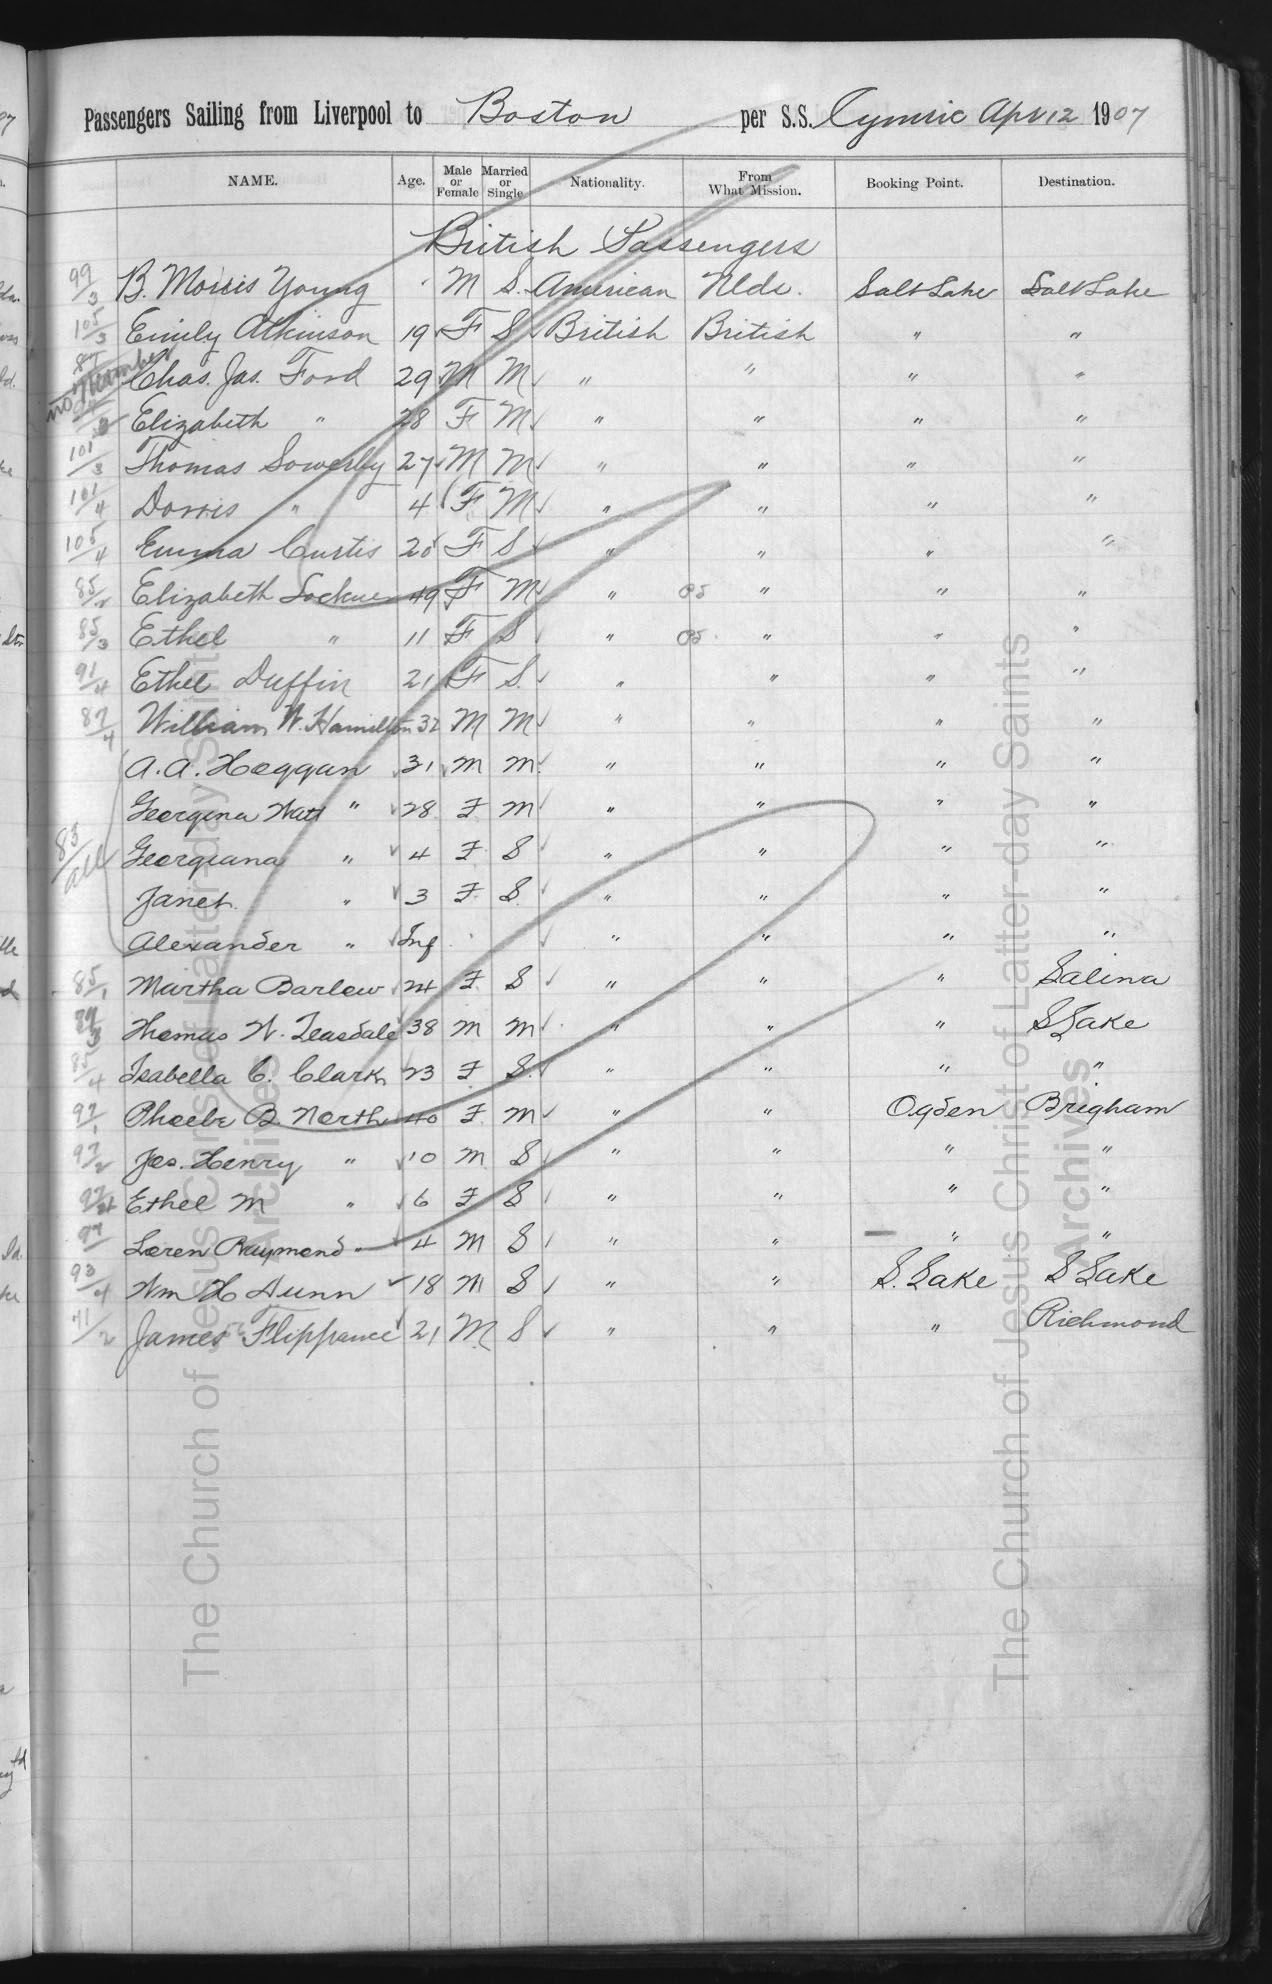 Passengers Sailing from Liverpool to Boston per S.S. Cymric Apr 12 1907
NAME. Age. Male or Female Married or Single Nationality. From What Mission. Booking Point. Destination.
British Passengers
99/3 B. Morris Young M S. American Nlds. Salt Lake Salt Lake
105/3 Emily Atkinson 19 F S British British " "
87 no number Chas. Jas. Ford 29 M M " " " "
Elizabeth " 28 F M " " " "
101/3 Thomas Sowerby 27 M M " " " "
101/4 Dorris " 4 F M " " " "
105/4 Emma Curtis 20 F S " " " "
85/2 Elizabeth 49 F M " 05 " " "
85/3 Ethel " 11 F S " 05 " " "
91/4 Ethel Duffin 21 F S. " " " "
87/4 William W. Hamilton 32 M M " " " "
A. A. Hoggan 31 M M " " " "
Georgina Watt " 28 F M " " " "
83/all Georgiana " 4 F S " " " "
Janet " 3 F S " " " "
Alexander " Inf " " " "
85/1 Martha Barlow 24 F S " " " Salina
89/3 Thomas W. Teasdale 38 M M " " " S Lake
85/4 Isabella C. Clark 23 F S. " " " "
97/1 Phoebe B. North 40 F M " " Ogden Brigham
97/2 Jos. Henry " 10 M S " " " "
97 Ethel M " 6 F S " " " "
97 Loren Raymond " 4 M S " " " "
93/4 Wm H Dunn 18 M S " " S. Lake S Lake
71/2 James Flippance 21 M S " " " Richmond
The Church of Jesus Christ of Latter-day Saints
Archives
The Church of Jesus Christ of Latter-day Saints
Archives